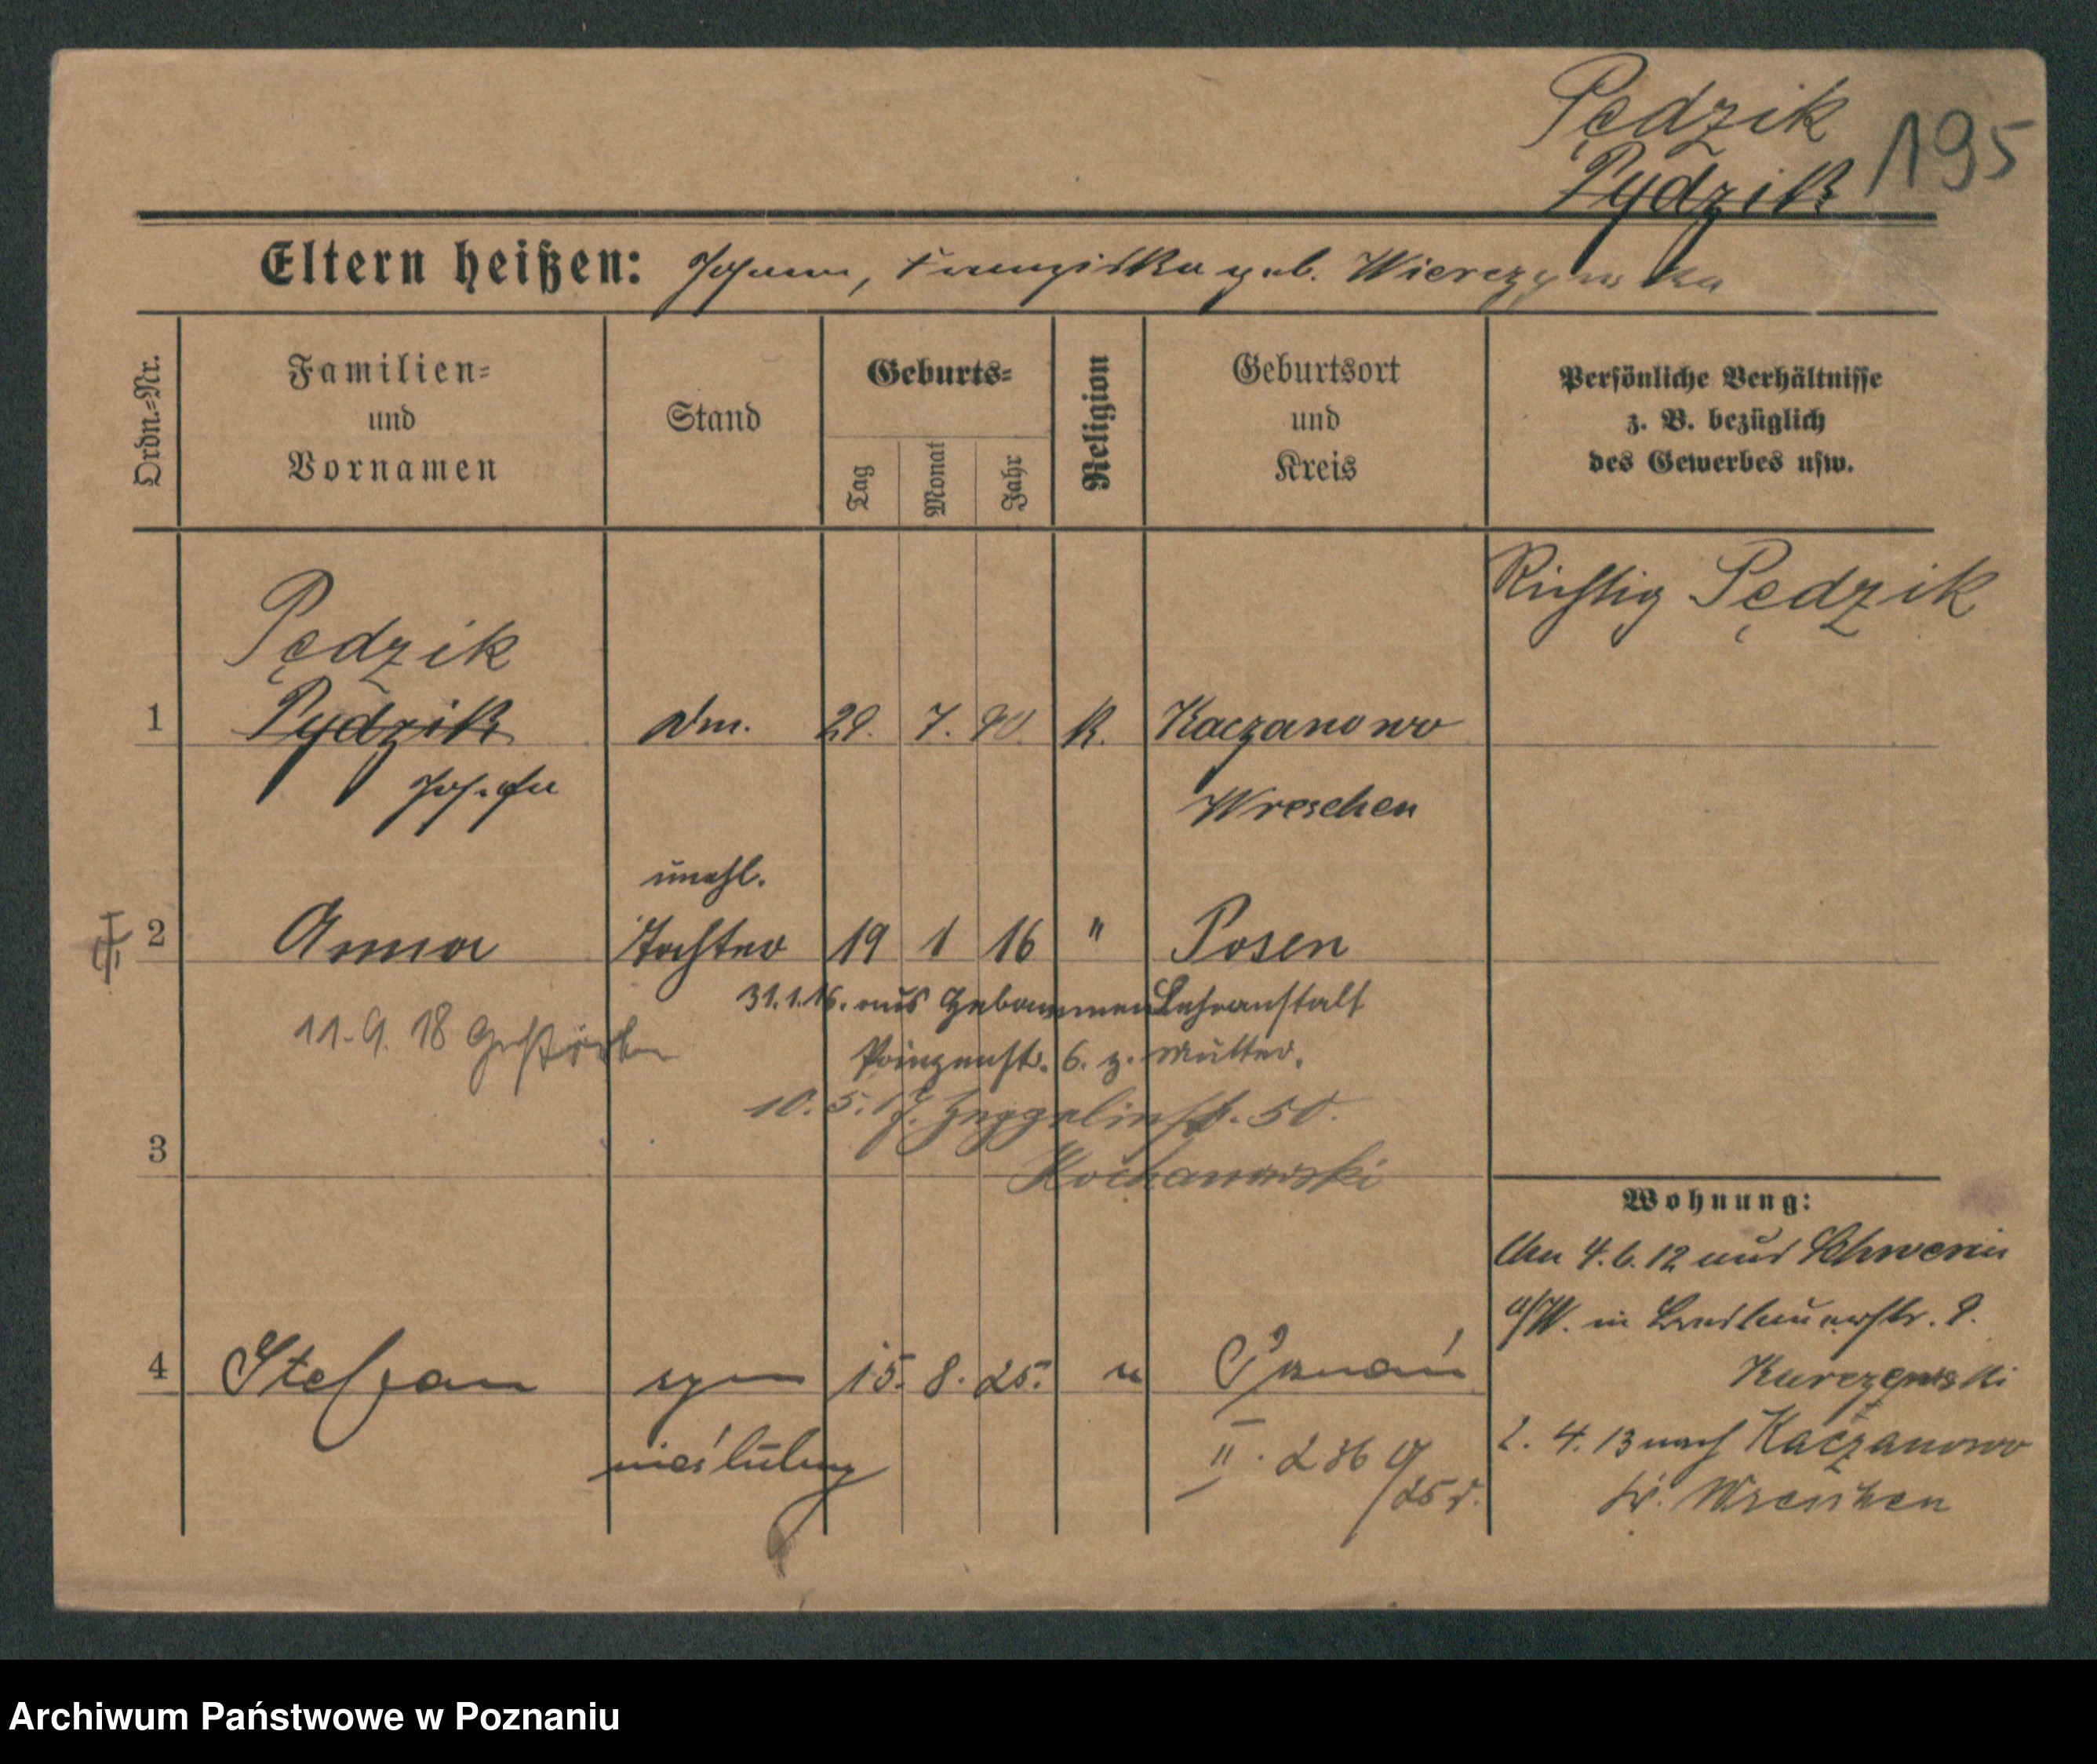 Pędzik
195
Pydzik
Eltern heißen: Johann, Franziska geb. Wierczynska
Ordn.=Nr.
Familien=
und
Vornamen
Stand
Geburts=
Tag
Monat
Jahr
Religion
Geburtsort
und
Kreis
Persönliche Verhältnisse
z. B. bezüglich
des Gewerbes usw.
Richtig Pędzik
Pędzik
1 Pydzik Dm. 29. 7. 90. K. Kaczanowo
Josefa Wreschen
unehl.
2 Anna Tochter 19 1 16 " Posen
31.1.16. aus Hebammen Lehranstalt
11.9.18 Gestorben
Prinzenstr. 6. z. Mutter.
10.5.17. Zeppelinstr. 50.
3
Kochanowski
Wohnung:
An 4.6.12 aus Schwerin
a/W. in Breslauerstr. 9.
4 Stefan syn 15. 8. 25. " Poznań
Kurczewski
nieślubny
II. 236
/25 r.
2. 4. 13 nach Kaczanowo
Kr. Wreschen
Archiwum Państwowe w Poznaniu